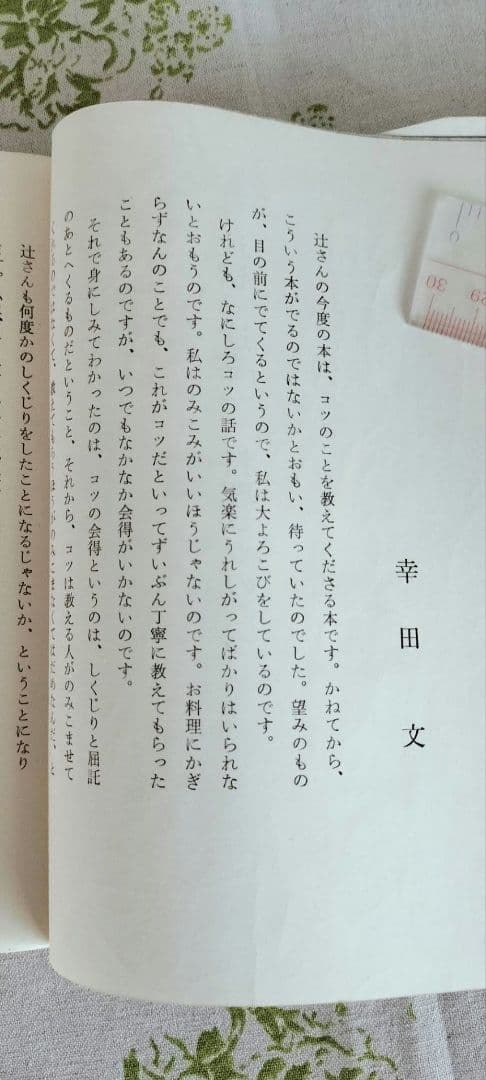 幸田文
辻さんの今度の本は、コツのことを教えてくださる本です。かねてから、
こういう本がでるのではないかとおもい、待っていたのでした。望みのもの
が、目の前にでてくるというので、私は大よろこびをしているのです。
けれども、なにしろコツの話です。気楽にうれしがってばかりはいられな
いとおもうのです。私はのみこみがいいほうじゃないのです。お料理にかぎ
らずなんのことでも、これがコツだといってずいぶん丁寧に教えてもらった
こともあるのですが、いつでもなかなか会得がいかないのです。
それで身にしみてわかったのは、コツの会得というのは、しくじりと屈託
のあとへくるものだということ、それから、コツは教える人がのみこませて
辻さんも何度かのしくじりをしたことになるじゃないか、ということになり
30
29
0